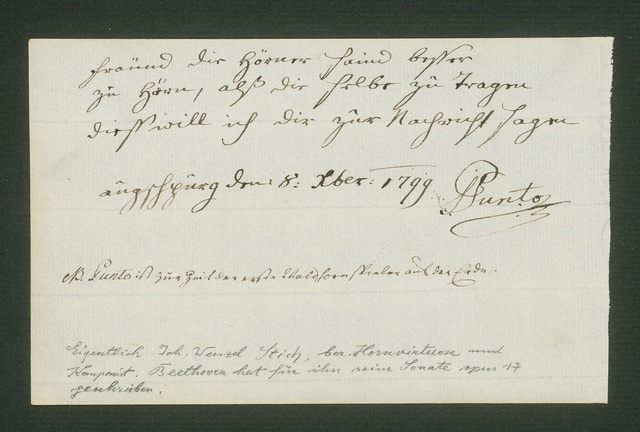 fraünd die Hörner saind besser
zü Hörn, alß die selbe zü Tragen
diess will ich dir zür Nachricht sagen
aügspürg den: 8: Xber: 1799 Punto
NB. Punto ist zur Zeit der erste Waldhorn spieler auf der Erde.
Eigentlich Joh. Wenzel Stich, ber. Hornvirtuose und
Komponist. Beethoven hat für ihn seine Sonate opus 17
geschrieben.